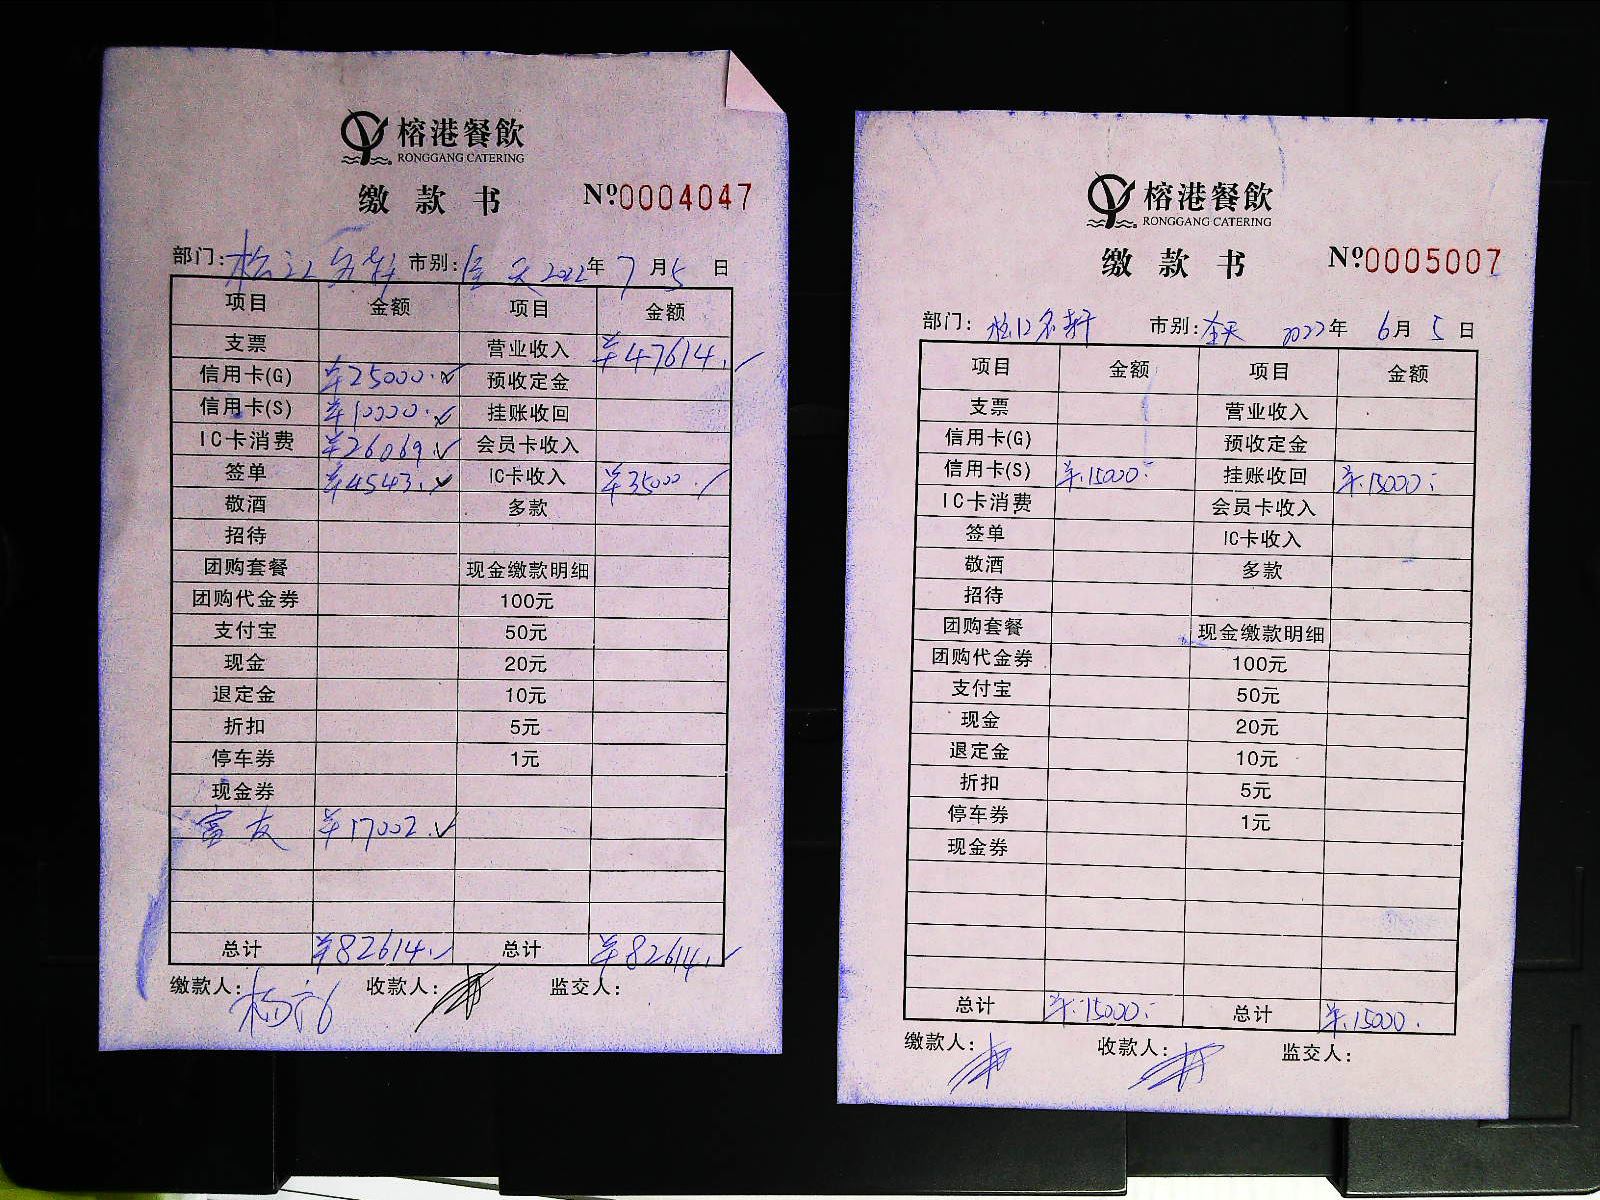 榕港餐飲
RONGGANG CATERING
缴款书 №0004047
部门: 松江名轩 市别: 全天 2022年 7月 5日
项目 金额 项目 金额
支票 营业收入 ¥47614.
信用卡(G) ¥25000. 预收定金
信用卡(S) ¥10000. 挂账收回
IC卡消费 ¥26069. 会员卡收入
签单 ¥4543. IC卡收入 ¥35000.
敬酒 多款
招待
团购套餐 现金缴款明细
团购代金券 100元
支付宝 50元
现金 20元
退定金 10元
折扣 5元
停车券 1元
现金券
富友 ¥17002.
总计 ¥82614. 总计 ¥82614.
缴款人: 收款人: 监交人:
榕港餐飲
RONGGANG CATERING
缴款书 №0005007
部门: 松江名轩 市别: 全天 2022年 6月 5日
项目 金额 项目 金额
支票 营业收入
信用卡(G) 预收定金
信用卡(S) ¥.15000. 挂账收回 ¥.15000.
IC卡消费 会员卡收入
签单 IC卡收入
敬酒 多款
招待
团购套餐 现金缴款明细
团购代金券 100元
支付宝 50元
现金 20元
退定金 10元
折扣 5元
停车券 1元
现金券
总计 ¥.15000. 总计 ¥.15000.
缴款人: 收款人: 监交人: